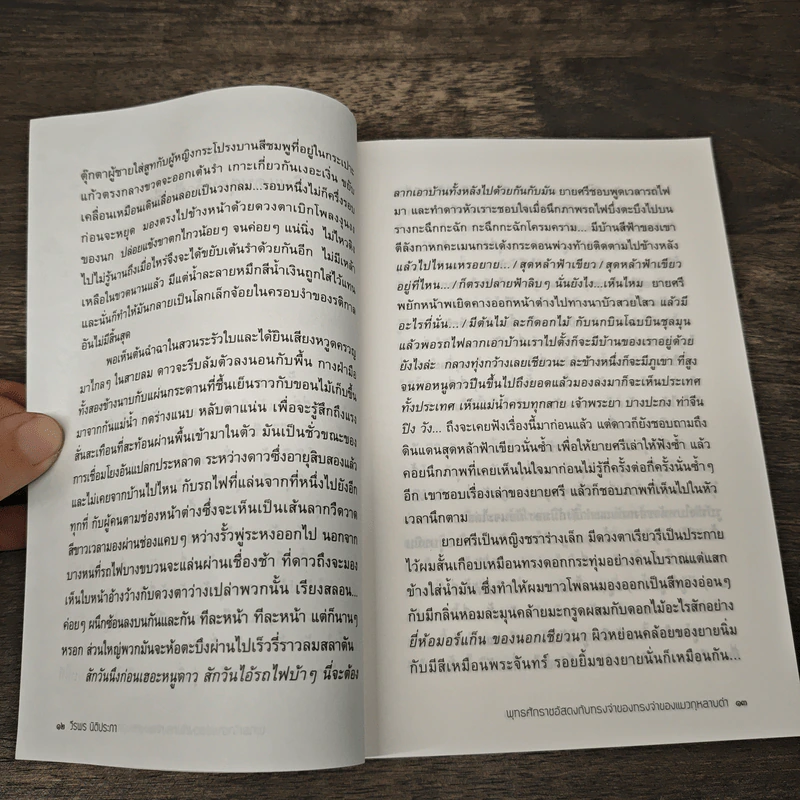 ตุ๊กตาผู้ชายใส่สูทกับผู้หญิงกระโปรงบานสีชมพูที่อยู่ในกระเปาะ
แก้วตรงกลางขวดจะออกเต้นรำ เกาะเกี่ยวกันเงอะเงิ่น ขยับ
เคลื่อนเหมือนเดินเลื่อนลอยเป็นวงกลม...รอบหนึ่งไม่ก็ครึ่งรอบ
ก่อนจะหยุด มองตรงไปข้างหน้าด้วยดวงตาเบิกโพลงงุนงง
ของนก ปล่อยแข้งขาตกไกวน้อยๆ จนค่อยๆ แน่นิ่ง ไม่ไหวติง
ไปไม่รู้นานถึงเมื่อไหร่จึงจะได้ขยับเต้นรำด้วยกันอีก ไม่มีเหล้า
เหลือในขวดนานแล้ว มีแต่น้ำละลายหมึกสีน้ำเงินถูกใส่ไว้แทน
และนั่นก็ทำให้มันกลายเป็นโลกเล็กจ้อยในครอบงำของรติกาล
อันไม่มีสิ้นสุด
พอเห็นต้นฉำฉาในสวนระรัวใบและได้ยินเสียงหวูดครวญ
มาไกลๆ ในสายลม ดาวจะรีบล้มตัวลงนอนกับพื้น กางฝ่ามือ
ทั้งสองข้างนาบกับแผ่นกระดานที่ชื้นเย็นราวกับขอนไม้เก็บขึ้น
มาจากก้นแม่น้ำ กดร่างแนบ หลับตาแน่น เพื่อจะรู้สึกถึงแรง
สั่นสะเทือนที่สะท้อนผ่านพื้นเข้ามาในตัว มันเป็นชั่วขณะของ
การเชื่อมโยงอันแปลกประหลาด ระหว่างดาวซึ่งอายุสิบสองแล้ว
และไม่เคยจากบ้านไปไหน กับรถไฟที่แล่นจากที่หนึ่งไปยังอีก
ทุกที่ กับผู้คนตามช่องหน้าต่างซึ่งจะเห็นเป็นเส้นลากวืดวาด
สีขาวเวลามองผ่านช่องแคบๆ หว่างรั้วพู่ระหงออกไป นอกจาก
บางหนที่รถไฟบางขบวนจะแล่นผ่านเชื่องช้า ที่ดาวถึงจะมอง
เห็นใบหน้าอ้างว้างกับดวงตาว่างเปล่าพวกนั้น เรียงสลอน...
ค่อยๆ ผนึกซ้อนลงบนกันและกัน ทีละหน้า ทีละหน้า แต่ก็นานๆ
หรอก ส่วนใหญ่พวกมันจะห้อตะบึงผ่านไปเร็วรี่ราวลมสลาตัน
สักวันนึงก่อนเฮอะหนูดาว สักวันไอ้รถไฟบ้าๆ นี่จะต้อง
๑๒ วีรพร นิติประภา
ลากเอาบ้านทั้งหลังไปด้วยกันกับมัน ยายศรีชอบพูดเวลารถไฟ
มา และทำดาวหัวเราะชอบใจเมื่อนึกภาพรถไฟบึ่งตะบึงไปบน
รางกะฉึกกะฉัก กะฉึกกะฉักโครมคราม... มีบ้านสีฟ้าของเขา
ตีลังกาหกคะเมนกระเด้งกระดอนพ่วงท้ายติดตามไปข้างหลัง
แล้วไปไหนเหรอยาย... / สุดหล้าฟ้าเขียว / สุดหล้าฟ้าเขียว
อยู่ที่ไหน... / ก็ตรงปลายฟ้าลิบๆ นั่นยังไง...เห็นไหม ยายศรี
พยักหน้าพเยิดคางออกหน้าต่างไปทางนาบัวสวยไสว แล้วมี
อะไรที่นั่น... / มีต้นไม้ ละก็ดอกไม้ กับนกบินโฉบบินชุลมุน
แล้วพอรถไฟลากเอาบ้านเราไปตั้งก็จะมีบ้านของเราอยู่ด้วย
ยังไงล่ะ กลางทุ่งกว้างเลยเชียวนะ ละข้างหนึ่งก็จะมีภูเขา ที่สูง
จนพอหนูดาวปีนขึ้นไปถึงยอดแล้วมองลงมาก็จะเห็นประเทศ
ทั้งประเทศ เห็นแม่น้ำครบทุกสาย เจ้าพระยา บางปะกง ท่าจีน
ปิง วัง... ถึงจะเคยฟังเรื่องนี้มาก่อนแล้ว แต่ดาวก็ยังชอบถามถึง
ดินแดนสุดหล้าฟ้าเขียวนั่นซ้ำ เพื่อให้ยายศรีเล่าให้ฟังซ้ำ แล้ว
คอยนึกภาพที่เคยเห็นในใจมาก่อนไม่รู้กี่ครั้งต่อกี่ครั้งนั่นซ้ำๆ
อีก เขาชอบเรื่องเล่าของยายศรี แล้วก็ชอบภาพที่เห็นไปในหัว
เวลานึกตาม
ยายศรีเป็นหญิงชราร่างเล็ก มีดวงตาเรียวรีเป็นประกาย
ไว้ผมสั้นเกือบเหมือนทรงดอกกระทุ่มอย่างคนโบราณแต่แสก
ข้างใส่น้ำมัน ซึ่งทำให้ผมขาวโพลนมองออกเป็นสีทองอ่อนๆ
กับมีกลิ่นหอมละมุนคล้ายมะกรูดผสมกับดอกไม้อะไรสักอย่าง
ยี่ห้อมอร์แก็น ของนอกเชียวนา ผิวหย่อนคล้อยของยายนิ่ม
กับมีสีเหมือนพระจันทร์ รอยยิ้มของยายนั่นก็เหมือนกัน...
พุทธศักราชอัสดงกับทรงจำของทรงจำของแมวกุหลาบดำ ๑๓